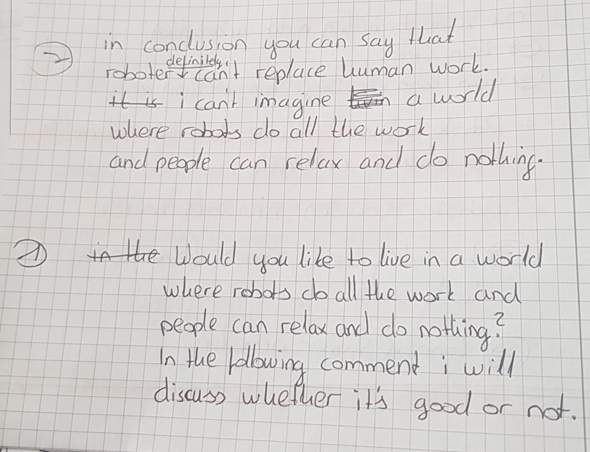 ② in conclusion you can say that
definitely
roboter can't replace human work.
it is i can't imagine a world
where robots do all the work
and people can relax and do nothing.
① in the Would you like to live in a world
where robots do all the work and
people can relax and do nothing?
In the following comment i will
discuss whether it's good or not.